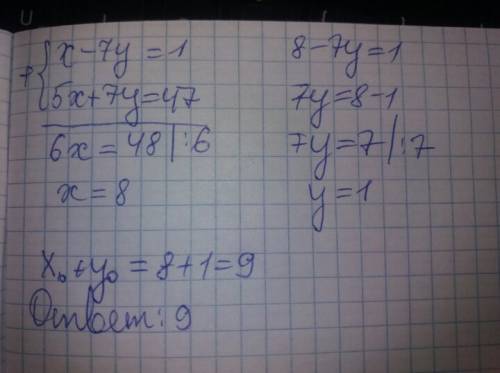 +{ x-7y=1
5x+7y=47
6x=48 |:6
x=8
8-7y=1
7y=8-1
7y=7 |:7
y=1
x₀+y₀=8+1=9
Ответ: 9